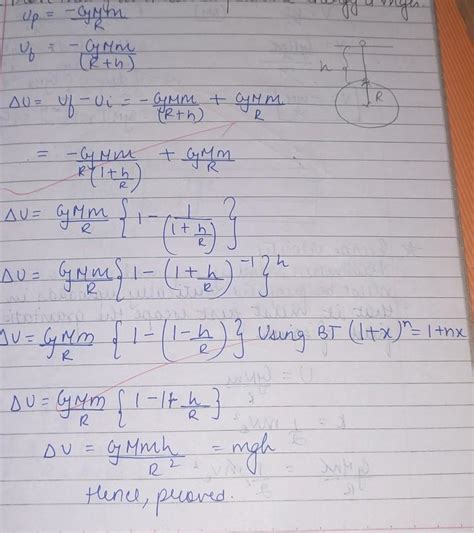 energy is mgh.
Up = -GMm/R
h
R
Uf = -GMm/(R+h)
ΔU = Uf - Ui = -GMm/(R+h) + GMm/R
= -GMm/R(1+h/R) + GMm/R
ΔU = GMm/R {1 - 1/(1+h/R)}
ΔU = GMm/R {1 - (1+h/R)^-1}^h
ΔU = GMm/R {1 - (1-h/R)} Using BT (1+x)^n = 1+nx
ΔU = GMm/R {1-1+h/R}
ΔU = GMmh/R² = mgh
Hence, proved.